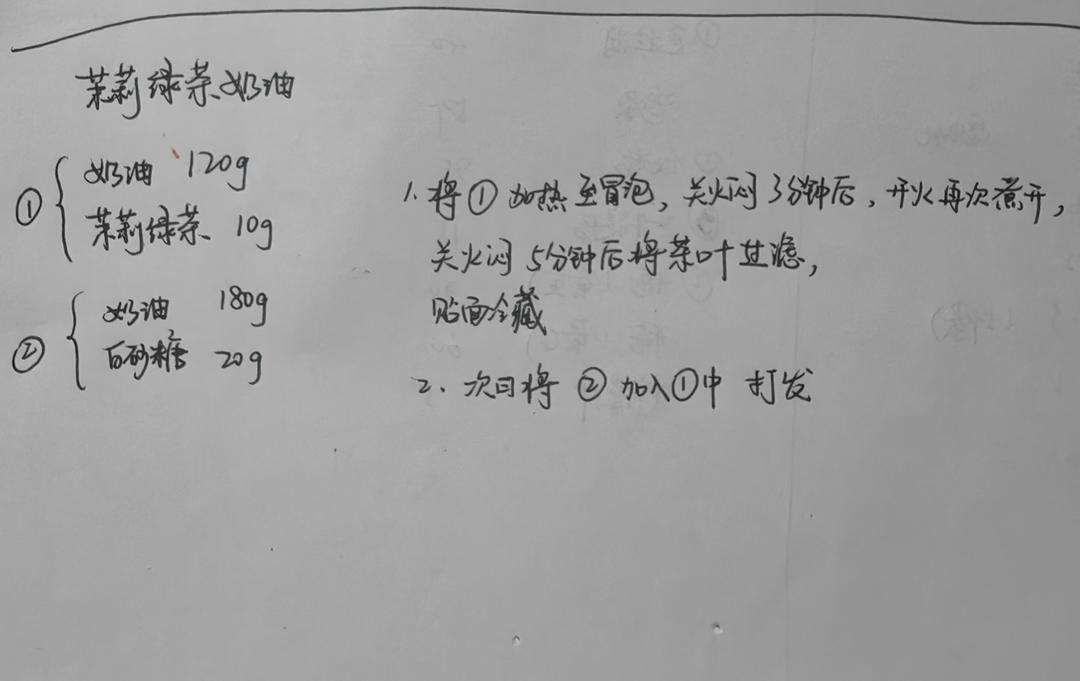 茉莉绿茶奶油
① 奶油 120g
茉莉绿茶 10g
② 奶油 180g
白砂糖 20g
1. 将①加热至冒泡，关火闷3分钟后，开火再次煮开，
关火闷5分钟后将茶叶过滤，
贴面冷藏
2. 次日将②加入①中 打发